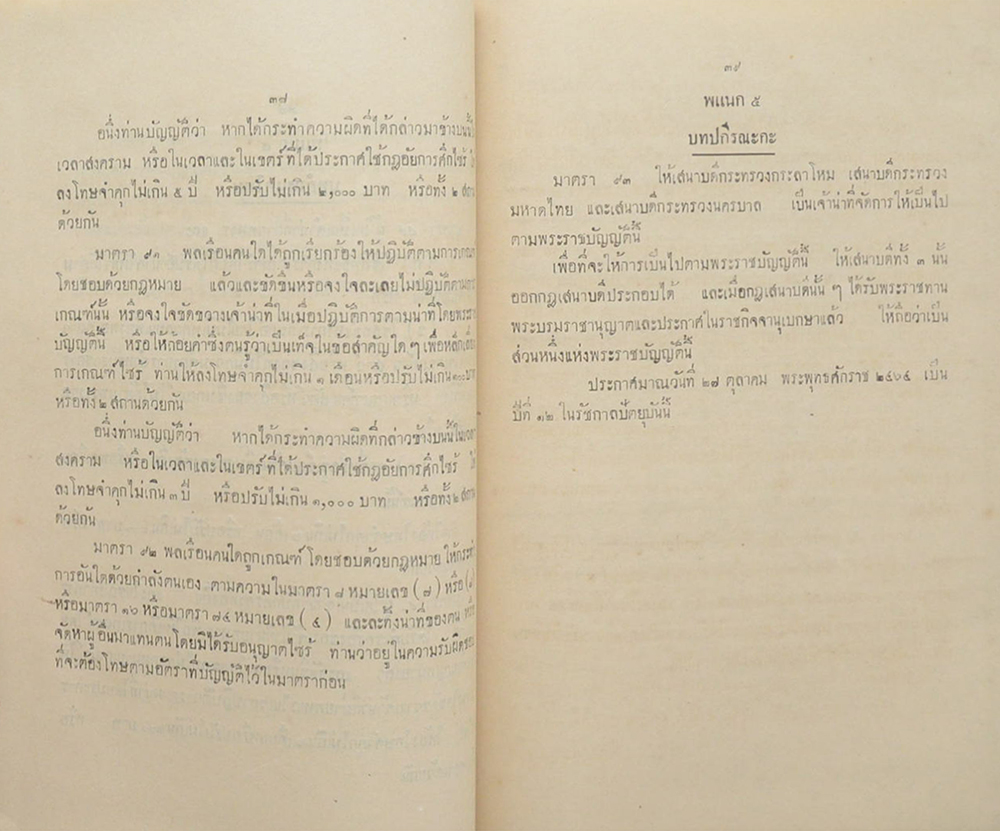 ๓๗
อนึ่งท่านบัญญัติว่า หากได้กระทำความผิดที่ได้กล่าวมาข้างบนนี้ใ
เวลาสงคราม หรือในเวลาและในเขตร์ที่ได้ประกาศใช้กฎอัยการศึกไซร้
ลงโทษจำคุกไม่เกิน ๕ ปี หรือปรับไม่เกิน ๒,๐๐๐ บาท หรือทั้ง ๒ สถาน
ด้วยกัน
มาตรา ๙๑ พลเรือนคนใดได้ถูกเรียกร้องให้ปฏิบัติตามการเกณฑ์
โดยชอบด้วยกฎหมาย แล้วและขัดขืนหรือจงใจละเลยไม่ปฏิบัติตามการ
เกณฑ์นั้น หรือจงใจขัดขวางเจ้าน่าที่ในเมื่อปฏิบัติการตามน่าที่โดยพระราช
บัญญัตินี้ หรือให้ถ้อยคำซึ่งตนรู้ว่าเป็นเท็จในข้อสำคัญใด ๆ เพื่อหลีกเลี่ยง
การเกณฑ์ไซร้ ท่านให้ลงโทษจำคุกไม่เกิน ๑ เดือนหรือปรับไม่เกิน ๑๐๐ บาท
หรือทั้ง ๒ สถานด้วยกัน
อนึ่งท่านบัญญัติว่า หากได้กระทำความผิดที่กล่าวข้างบนนี้ในเวลา
สงคราม หรือในเวลาและในเขตร์ที่ได้ประกาศใช้กฎอัยการศึกไซร้ ให้
ลงโทษจำคุกไม่เกิน ๓ ปี หรือปรับไม่เกิน ๑,๐๐๐ บาท หรือทั้ง ๒ สถาน
ด้วยกัน
มาตรา ๙๒ พลเรือนคนใดถูกเกณฑ์โดยชอบด้วยกฎหมาย ให้กระทำ
การอันใดด้วยกำลังตนเอง ตามความในมาตรา ๘ หมายเลข (๗) หรือ
หรือมาตรา ๑๐ หรือมาตรา ๗๔ หมายเลข (๔) และละทิ้งน่าที่ของตน หรือ
จัดหาผู้อื่นมาแทนตนโดยมิได้รับอนุญาตไซร้ ท่านว่าอยู่ในความรับผิดชอบ
ที่จะต้องโทษตามอัตราที่บัญญัติไว้ในมาตราก่อน
๓๙
พแนก ๕
บทปกิรณะกะ
มาตรา ๙๓ ให้เสนาบดีกระทรวงกระลาโหม เสนาบดีกระทรวง
มหาดไทย และเสนาบดีกระทรวงนครบาล เป็นเจ้าน่าที่จัดการให้เป็นไป
ตามพระราชบัญญัตินี้
เพื่อที่จะให้การเป็นไปตามพระราชบัญญัตินี้ ให้เสนาบดีทั้ง ๓ นั้น
ออกกฎเสนาบดีประกอบได้ และเมื่อกฎเสนาบดีนั้น ๆ ได้รับพระราชทาน
พระบรมราชานุญาตและประกาศในราชกิจจานุเบกษาแล้ว ให้ถือว่าเป็น
ส่วนหนึ่งแห่งพระราชบัญญัตินี้
ประกาศมาณวันที่ ๒๗ ตุลาคม พระพุทธศักราช ๒๔๖๔ เป็น
ปีที่ ๑๒ ในรัชกาลปัตยุบันนี้